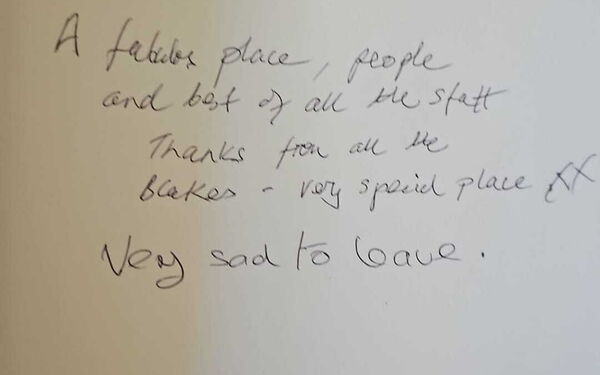 A fabulos place, people
and best of all the staff
Thanks from all the
Blakes - very special place XX
Very sad to leave.